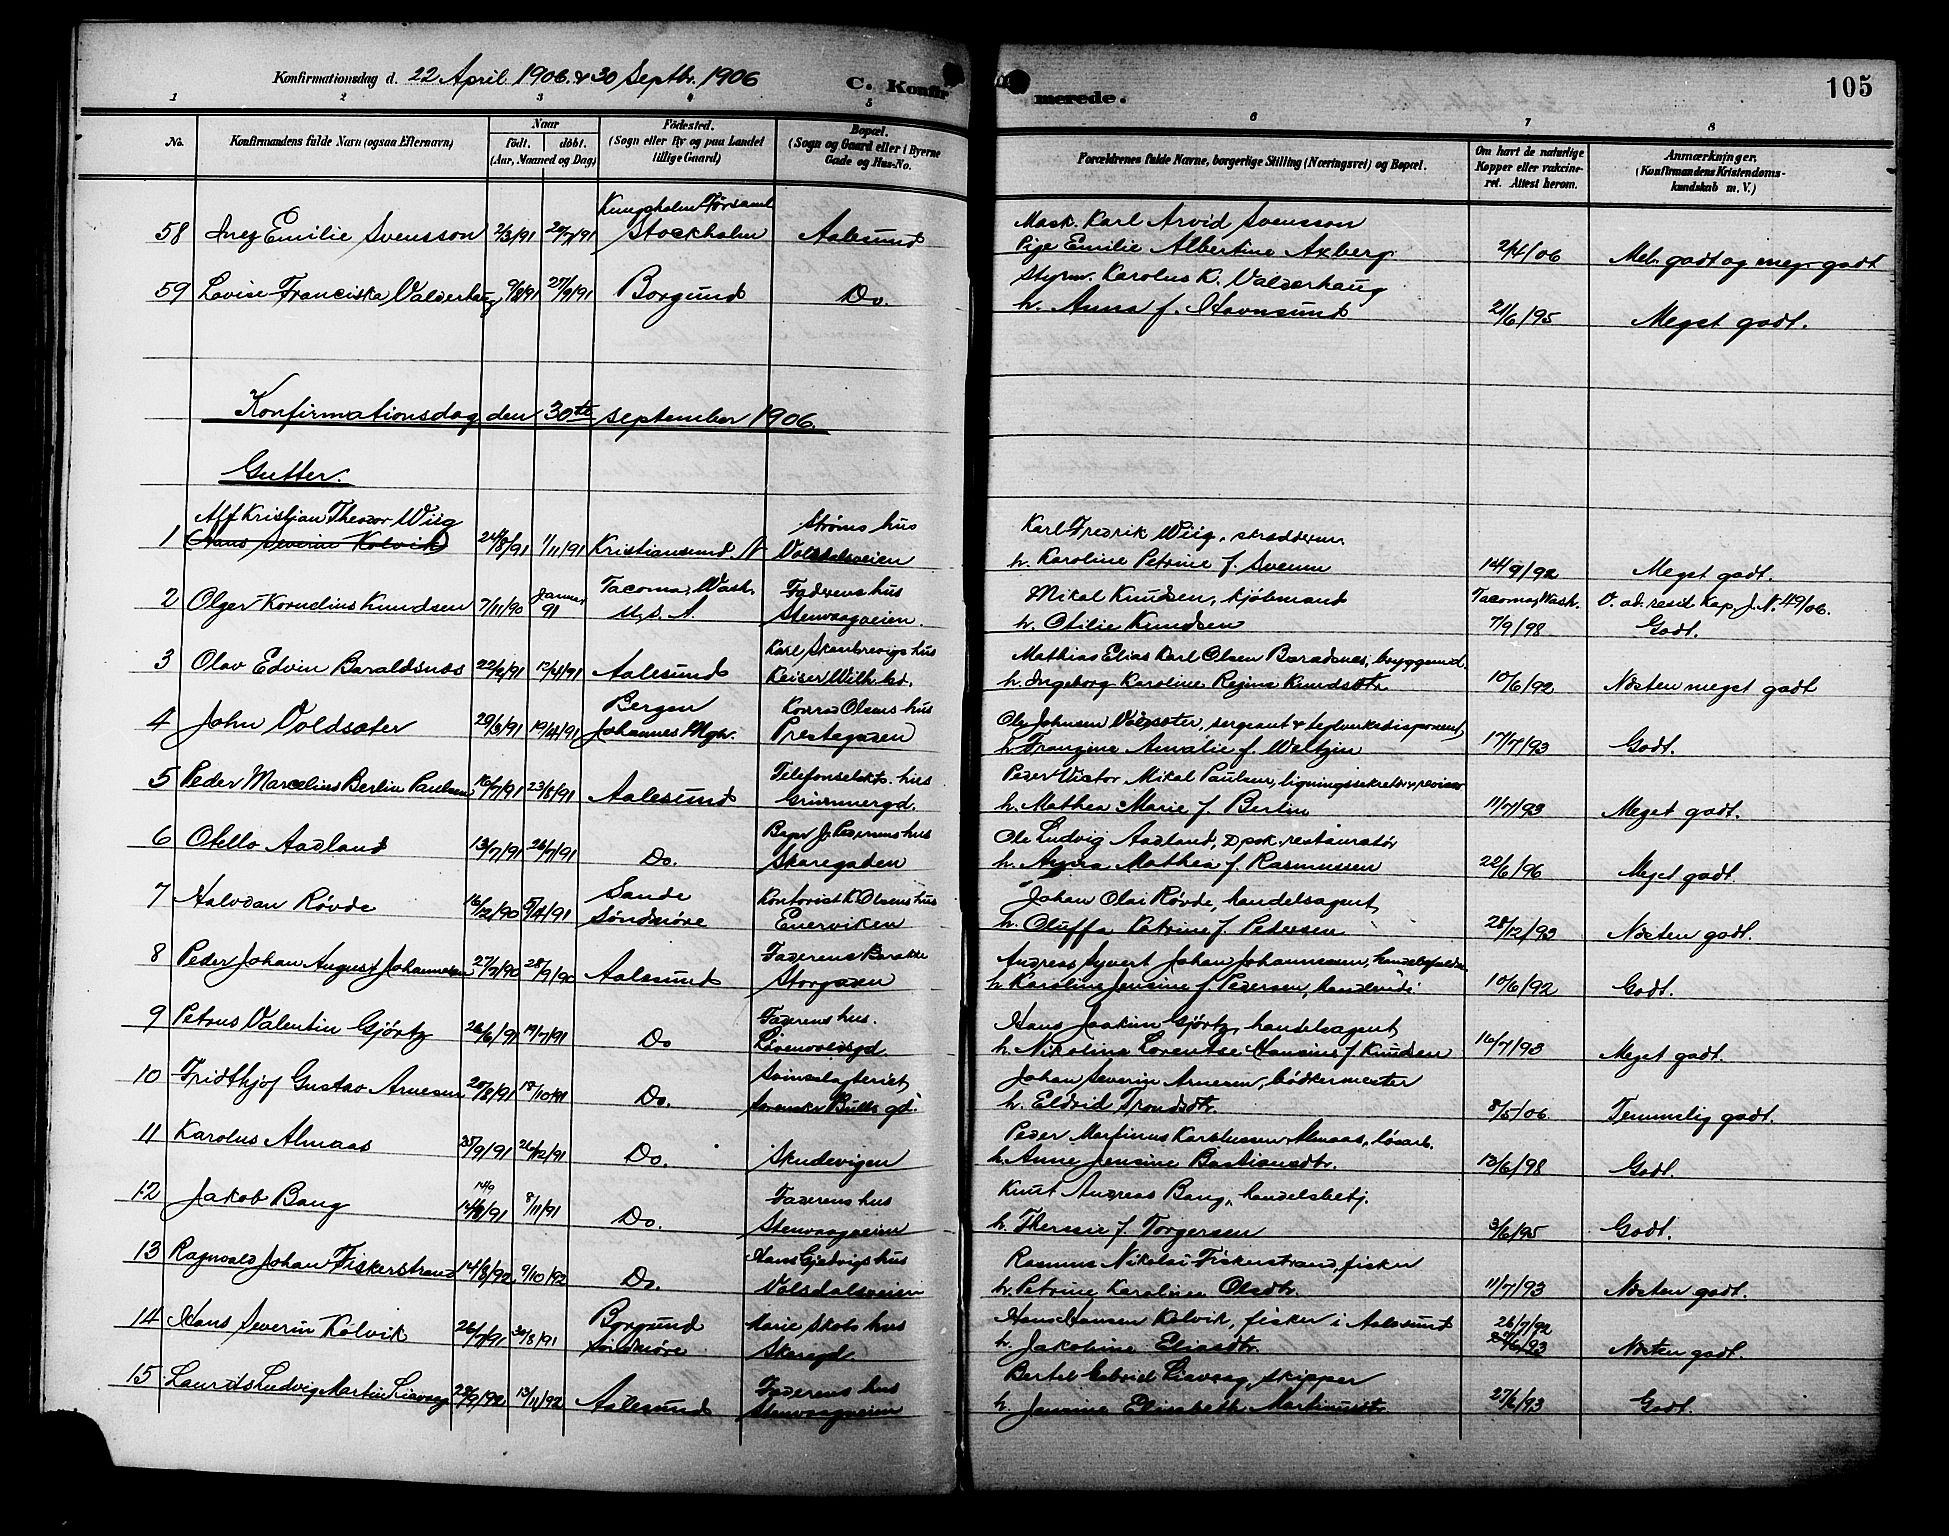 Konfirmationsdag d. 22 April 1906 & 30 Septbr. 1906
C. Konfirmerede.
105
1 2 3 4 5 6 7 8
No.
Konfirmandens fulde Navn (ogsaa Efternavn)
Naar
født. døbt.
(Aar, Maaned og Dag)
Fødested.
(Sogn eller By og paa Landet
tillige Gaard)
Bopæl.
(Sogn og Gaard eller i Byerne
Gade og Hus-No.
Forældrenes fulde Navne, borgerlige Stilling (Næringsvei) og Bopæl.
Om havt de naturlige
Kopper eller vakcine-
ret. Attest herom.
Anmærkninger.
(Konfirmandens Kristendoms-
kundskab m. V.)
58 Inez Emilie Svensson 2/3/91 Stockholm Aalesund
Mask. Karl Arvid Svensson
Pige Emilie Albertine Axberg 2/4/06 Mel. godt og meg. godt
59 Lovise Franciska Valderhaug 27/9/91 Borgund Do.
Styrm. Karolus K. Valderhaug
h. Anna f. Havnsund 21/6/95 Meget godt.
Konfirmationsdag den 30te september 1906.
Gutter.
1 Alf Kristjan Theodor Wiig
Hans Severin Kolvik 24/8/91 1/11/91 Kristiansund N
Strøms hus
Volsdalsveien
Karl Fredrik Wiig, skræddersv.
h. Karoline Petrine f. 14/9/92 Meget godt.
2 Olger Kornelius Knudsen 7/11/90 Januar 91
Tacoma, Wash.
U. S. A.
Faderens hus
Stenvaagveien.
Mikal Knudsen, kjøbmand
h. Otilie Knudsen
Tacoma, Wash.
7/9/98
V. ad. resid. Kap. J. N. 49/06.
Godt.
3 Olav Edvin Baraldsnæs 22/2/91 12/4/91 Aalesund
Karl hus
Keiser Wilh. gd.
Mathias Elias Karl Olsen Baradsnes, bryggemd.
h. Ingeborg Karoline Regine Knudsdtr 10/6/92 Næsten meget godt
4 John Voldsæter 29/3/91 19/4/91
Bergen
Johannes Mgh.
Konrad Olsens hus
Prestegaden
Ole Johnsen Voldsæter, sergeant & teglverksdisponent,
h. Franzine Amalie f. Weltzin 17/7/93 Godt.
5 Peder Marcelius Berlin Paulsen 16/7/91 23/8/91 Aalesund
Telefonselsk. hus
Grimmergd.
Peder Victor Mikal Paulsen, ligningssekretær & revisor
h. Mathea Marie f. Berlin 11/7/93 Meget godt.
6 Otello Aadland 13/7/91 26/7/91 Do.
J. Pedersens hus
Skaregaden
Ole Ludvig Aadland, Dpsk. restauratør
h. Anna Mathea f. Rasmussen 22/6/96 Meget godt.
7 Halvdan Røvde 16/12/90 91
Sande
Søndmøre
Kontorist K. Olsens hus
Enerviken
Johan Olai Røvde, handelsagent,
h. Oluffa Petrine f. Pedersen 28/12/93 Næsten godt.
8 Peder Johan August Johannesen 27/7/90 28/9/90 Aalesund
Faderens Barakke
Storgaden
Andreas Syvert Johan Johannessen,
h. Karoline Jensine f. Pedersen, 10/6/92 Godt.
9 Petrus Valentin Gjørtz 26/6/91 19/7/91 Do
Faderens hus.
Løvenvoldsgd.
Hans Joakim Gjørtz, handelsagent,
h. Nikoline Lorentse Hansine f. Knudsen 16/7/93 Meget godt.
10 Fridthjof Gustav Arnesen 20/8/91 18/10/91 Do.
Svineslagteriet,
Sverdrup Bulls gd.
Johan Severin Arnesen, bødkermester
h. Eldrid Trondsdtr. 8/5/06 Temmelig godt.
11 Karolus Almaas 25/9/91 26/12/91 Do. Skudevigen
Peder Martinus Karstensen Almaas, løsarb.
h. Anne Jensine Bastiansdtr. 13/6/98 Godt.
12 Jakob Bang 14/9 14/8/91 8/11/91 Do.
Faderens hus
Stenvaagveien
Knut Andreas Bang, handelsbetj.
h. Theresie f. Torgersen 3/6/95 Godt.
13 Ragnvald Johan Fiskerstrand 14/8/92 9/10/92 Do.
Hans Gjelvigs hus
Volsdalsveien
Rasmus Nikolai Fiskerstrand, fisker
h. Petrine Karoline Olsdtr. 11/7/93 Næsten godt.
14 Hans Severin Kolvik 26/7/91 30/8/91
Borgund
Søndmøre
Marie Skots hus
Skaregd.
Hans Hansen Kolvik, fisker i Aalesund
h. Jakobine Eliasdtr.
26/7/92
/6/93
Næsten godt.
15 Laurits Ludvig Martin Liavaag 28/9/92 13/11/92 Aalesund
Faderens hus
Stenvaagveien
Bertel Gabriel Liavaag, skipper
h. Jensine Elisabeth Martinusdtr. 27/6/93 Godt.